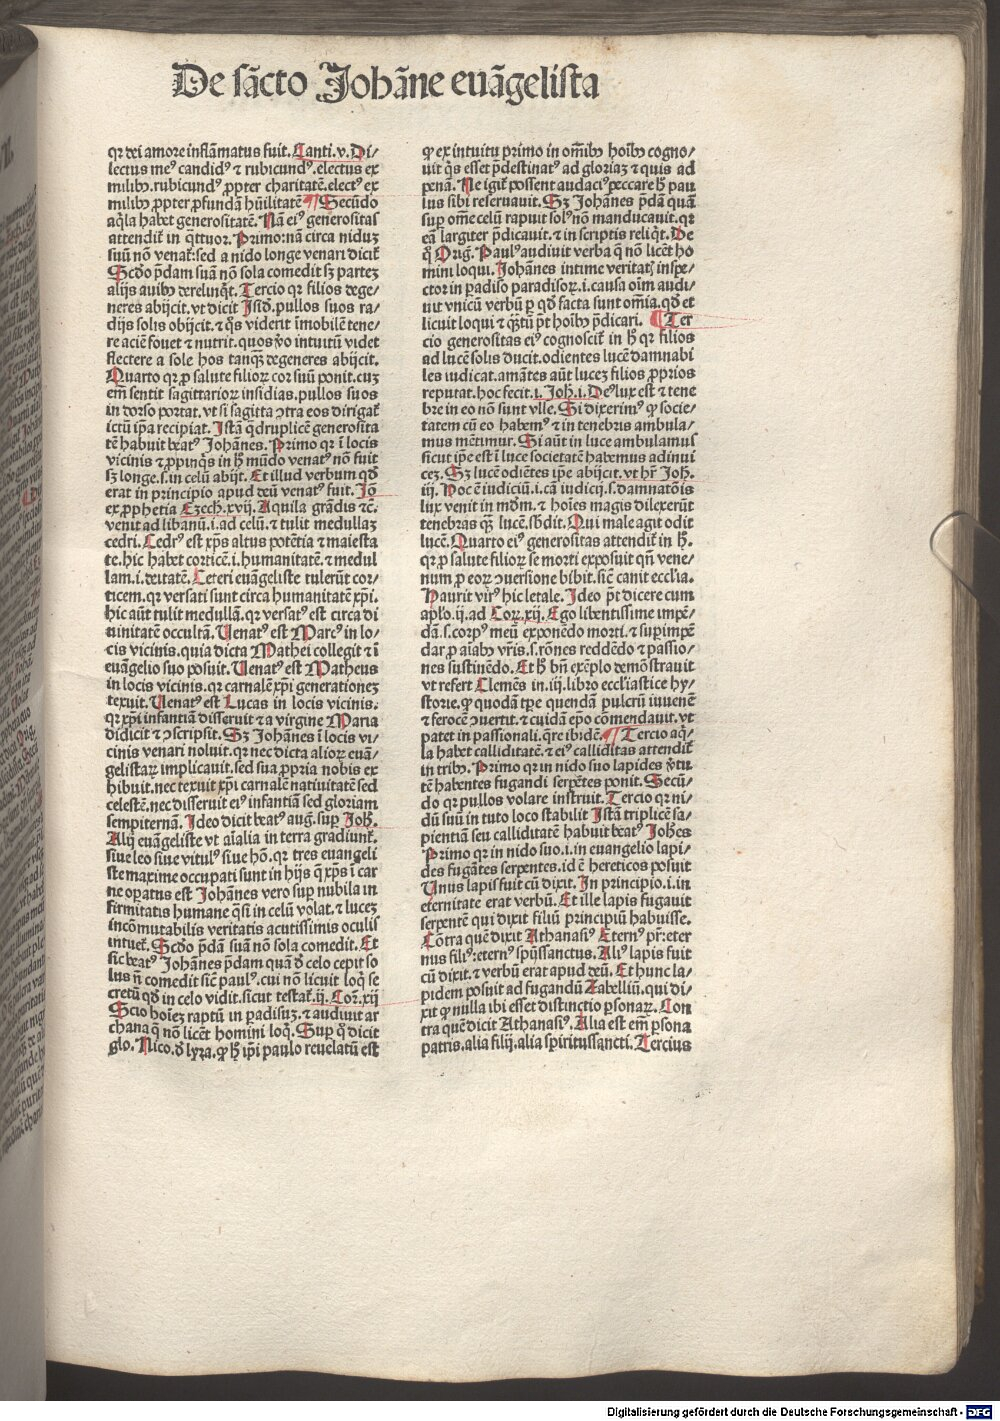 De sācto Johāne euāgelista
qꝛ dei amore inflāmatus fuit. Canti. v. Di/
lectus meꝰ candidꝰ ⁊ rubicundꝰ. electus ex
milibꝫ. rubicundꝰ ꝓpter charitatē. electꝰ ex
milibꝫ ꝓpter ꝓfundā hūilitatē ¶ Secūdo
aq̄la habet generositatē. Nā eiꝰ generositas
attendit̄ in q̄ttuor. Primo: nā circa niduꝫ
suū nō venat̄: sed a nido longe venari dicit̄
Scd̄o p̄dam suā nō sola comedit sꝫ partez
alijs auibꝫ derelinq̄t. Tercio qꝛ filios dege/
neres abijcit. vt dicit Isid̄. pullos suos ra/
dijs solis obijcit. ⁊ q̄s viderit īmobilē tene/
re aciē fouet ⁊ nutrit. quos v̄o intuitū videt
flectere a sole hos tanqꝫ degeneres abijcit.
Quarto qꝛ ꝓ salute filioꝝ cor suū ponit. cuꝫ
em̄ sentit sagittarioꝝ insidias. pullos suos
in dorso portat. vt si sagitta ꝯtra eos dirigat̄
ictū ip̄a recipiat. Istā q̄druplicē generosita
tē habuit beatꝰ Johānes. Primo qꝛ ī locis
vicinis ⁊ ꝓpinq̄s in h̄ mūdo venatꝰ nō fuit
sꝫ longe. s. in celū abijt. Et illud verbum qd̄
erat in principio apud deū venatꝰ fuit. Jō
ex ꝓphetia Ezech. xvij. Aquila grādis ⁊c̄.
venit ad libanū. i. ad celū. ⁊ tulit medullaꝫ
cedri. Cedrꝰ est xp̄s altus potētia ⁊ maiesta
te. hic habet corticē. i. humanitatē. ⁊ medul
lam. i. deitatē. Ceteri euāgeliste tulerūt cor/
ticem. qꝛ versati sunt circa humanitatē xp̄i.
hic aūt tulit medullā. qꝛ versatꝰ est circa di
uinitatē occultā. Uenatꝰ est Marcꝰ in lo/
cis vicinis. quia dicta Mathei collegit ⁊ ī
euāgelio suo posuit. Uenatꝰ est Matheus
in locis vicinis. qꝛ carnalē xp̄i generationeꝫ
texuit. Uenatꝰ est Lucas in locis vicinis.
qꝛ xp̄i infantiā disseruit ⁊ a virgine Maria
didicit ⁊ ꝯscripsit. Sꝫ Johānes ī locis vi/
cinis venari noluit. qꝛ nec dicta alioꝝ euā/
gelistaꝝ implicauit. sed sua ꝓpria nobis ex
hibuit. nec texuit xp̄i carnalē natiuitatē sed
celestē. nec disseruit eiꝰ infantiā sed gloriam
sempiternā. Ideo dicit beatꝰ aug. sup̄ Joh̄.
Alij euāgeliste vt aīalia in terra gradiunt̄.
siue leo siue vitulꝰ siue hō. qꝛ tres euangeli
ste maxime occupati sunt in hijs q̄ xp̄s ī car
ne oꝑatus est Johānes vero suꝑ nubila in
firmitatis humane q̄si in celū volat. ⁊ luceꝫ
incōmutabilis veritatis acutissimis oculis
intuet̄. Scd̄o p̄dā suā nō sola comedit. Et
sic beatꝰ Johānes p̄dam quā d̄ celo cepit so
lus n̄ comedit sic̄ paulꝰ. cui nō licuit loq̄ se
cretū qd̄ in celo vidit. sicut testat̄. ij. Cor̄. xij
Scio hoīeꝫ raptū in ꝑadisuꝫ. ⁊ audiuit ar
chana q̄ nō licēt homini loq̄. Suꝑ q̄ dicit
glo. Nico. d̄ lyra. ꝙ h̄ ip̄i paulo reuelatū est
ꝙ ex intuitu primo in om̄ibꝫ hoībꝫ cogno/
uit q̄s esset p̄destinatꝰ ad gloriaꝫ ⁊ quis ad
penā. Ne igit̄ possent audaciꝰ peccare h̄ pau
lus sibi reseruauit. Sꝫ Johānes p̄dā quā
suꝑ om̄e celū rapuit solꝰ nō manducauit. qꝛ
eā largiter p̄dicauit. ⁊ in scriptis reliq̄t. De
q̄ Orig. Paulꝰ audiuit verba q̄ nō licēt ho
mini loqui. Johānes intime veritatꝭ inspe/
ctor in ꝑadiso ꝑadisoꝝ. i. causa oīm audi/
uit vnicū verbū ꝑ qd̄ facta sunt om̄ia. qd̄ et
licuit loqui ⁊ q̄ꝫtū p̄t hoībꝫ p̄dicari. ¶ Ter
cio generositas eiꝰ cognoscit̄ in h̄ qꝛ filios
ad lucē solis ducit. odientes lucē damnabi
les iudicat. amātes aūt luceꝫ filios ꝓprios
reputat. hoc fecit. i. Joh̄. i. Deꝰ lux est ⁊ tene
bre in eo nō sunt vlle. Si dixerimꝰ ꝙ socie/
tatem cū eo habemꝰ ⁊ in tenebris ambula/
mus mētimur. Si aūt in luce ambulamus
sicut ip̄e est ī luce societatē habemus adinui
ceꝫ. Sꝫ lucē odiētes ip̄e abijcit. vt hr̄ Joh̄.
iij. Hoc ē iudiciū. i. cā iudicij. s. damnatōis
lux venit in mdm̄. ⁊ hoīes magis dilexerūt
tenebras qꝫ lucē. sb̄dit. Qui male agit odit
lucē. Quarto eiꝰ generositas attendit̄ in h̄.
qꝛ ꝓ salute filioꝝ se morti exposuit qn̄ vene/
num ꝓ eoꝝ ꝯuersione bibit. sic̄ canit eccl̄ia.
Haurit virꝰ hic letale. Ideo p̄t dicere cum
apl̄o. ij. ad Coꝝ. xij. Ego libentissime impē/
dā. s. corpꝰ meū exponēdo morti. ⁊ suꝑimpē
dar ꝓ aīabꝫ vr̄is. s. rōnes reddēdo ⁊ passio/
nes sustinēdo. Et h̄ bn̄ exēplo demōstrauit
vt refert Clemēs in. iij. libro eccl̄iastice hy/
storie. ꝙ quodā tꝑe quendā pulcrū iuuenē
⁊ ferocē ꝯuertit. ⁊ cuidā ep̄o cōmendauit. vt
patet in passionali. q̄re ibidē. ¶ Tercio aq̄/
la habet calliditatē. ⁊ eiꝰ calliditas attendit̄
in tribꝫ. Primo qꝛ in nido suo lapides v̄tu
tē habentes fugandi serpētes ponit. Secū/
do qꝛ pullos volare instruit. Tercio qꝛ ni/
dū suū in tuto loco stabilit Istā triplicē sa/
pientiā seu calliditatē habuit beatꝰ Joh̄es
Primo qꝛ in nido suo. i. in euangelio lapi/
des fugātes serpentes. id ē hereticos posuit
Unus lapis fuit cū dixit. In principio. i. in
eternitate erat verbū. Et ille lapis fugauit
serpentē qui dixit filiū principiū habuisse.
Cōtra quē dixit Athanasiꝰ Eternꝰ pr̄: eter
nus filiꝰ: eternꝰ sp̄ūssanctus. Aliꝰ lapis fuit
cū dixit. ⁊ verbū erat apud deū. Et hunc la/
pidem posuit ad fugandū Zabelliū. qui di/
xit ꝙ nulla ibi esset distinctio ꝑsonaꝝ. Con
tra quē dicit Athanasiꝰ. Alia est em̄ ꝑsona
patris. alia filij. alia spiritussancti. Tercius
Digitalisierung gefördert durch die Deutsche Forschungsgemeinschaft - DFG